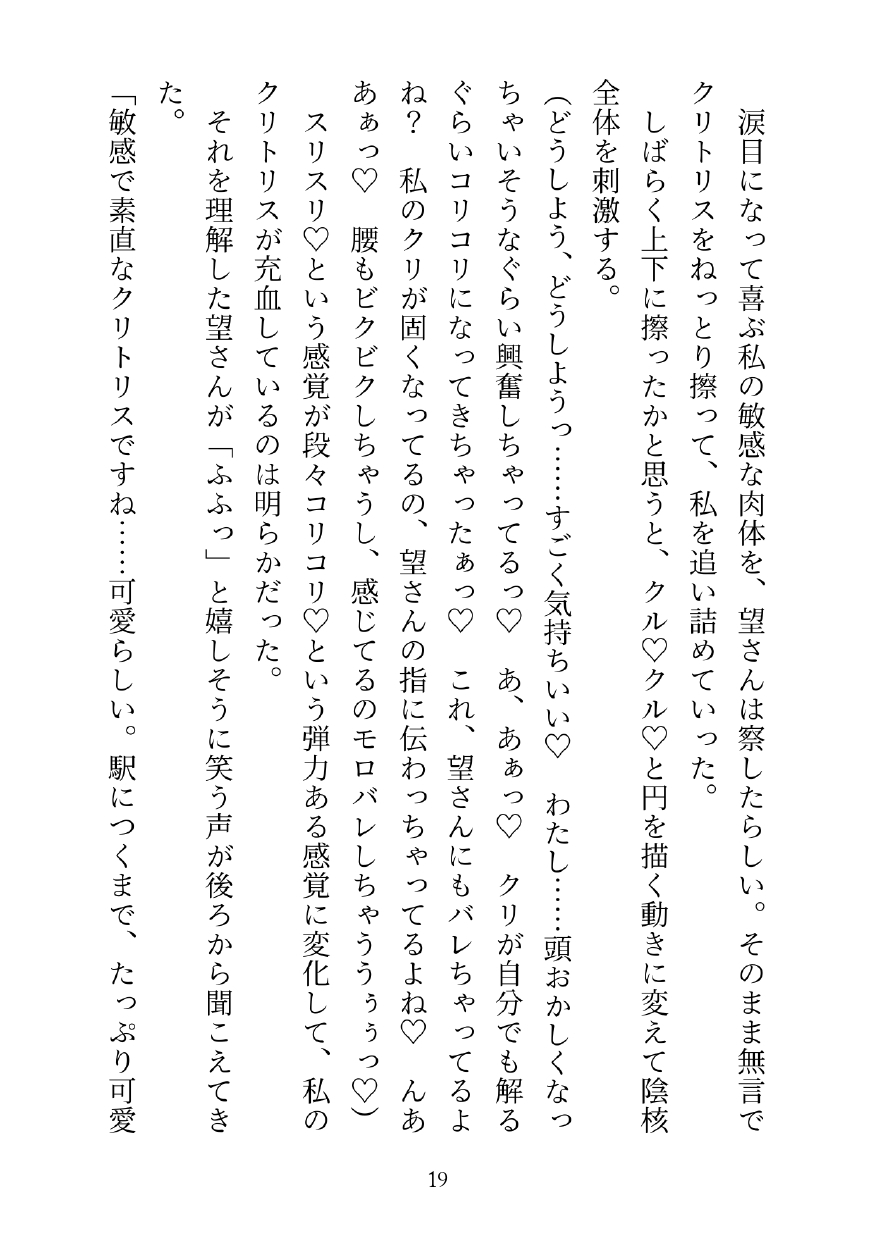 涙目になって喜ぶ私の敏感な肉体を、望さんは察したらしい。そのまま無言で
クリトリスをねっとり擦って、私を追い詰めていった。
　しばらく上下に擦ったかと思うと、クル♡クル♡と円を描く動きに変えて陰核
全体を刺激する。
（どうしよう、どうしようっ……すごく気持ちいい♡　わたし……頭おかしくなっ
ちゃいそうなぐらい興奮しちゃってるっ♡　あ、あぁっ♡　クリが自分でも解る
ぐらいコリコリになってきちゃったぁっ♡　これ、望さんにもバレちゃってるよ
ね？　私のクリが固くなってるの、望さんの指に伝わっちゃってるよね♡　んあ
あぁっ♡　腰もビクビクしちゃうし、感じてるのモロバレしちゃううぅぅっ♡）
　スリスリ♡という感覚が段々コリコリ♡という弾力ある感覚に変化して、私の
クリトリスが充血しているのは明らかだった。
　それを理解した望さんが「ふふっ」と嬉しそうに笑う声が後ろから聞こえてき
た。
「敏感で素直なクリトリスですね……可愛らしい。駅につくまで、たっぷり可愛
19